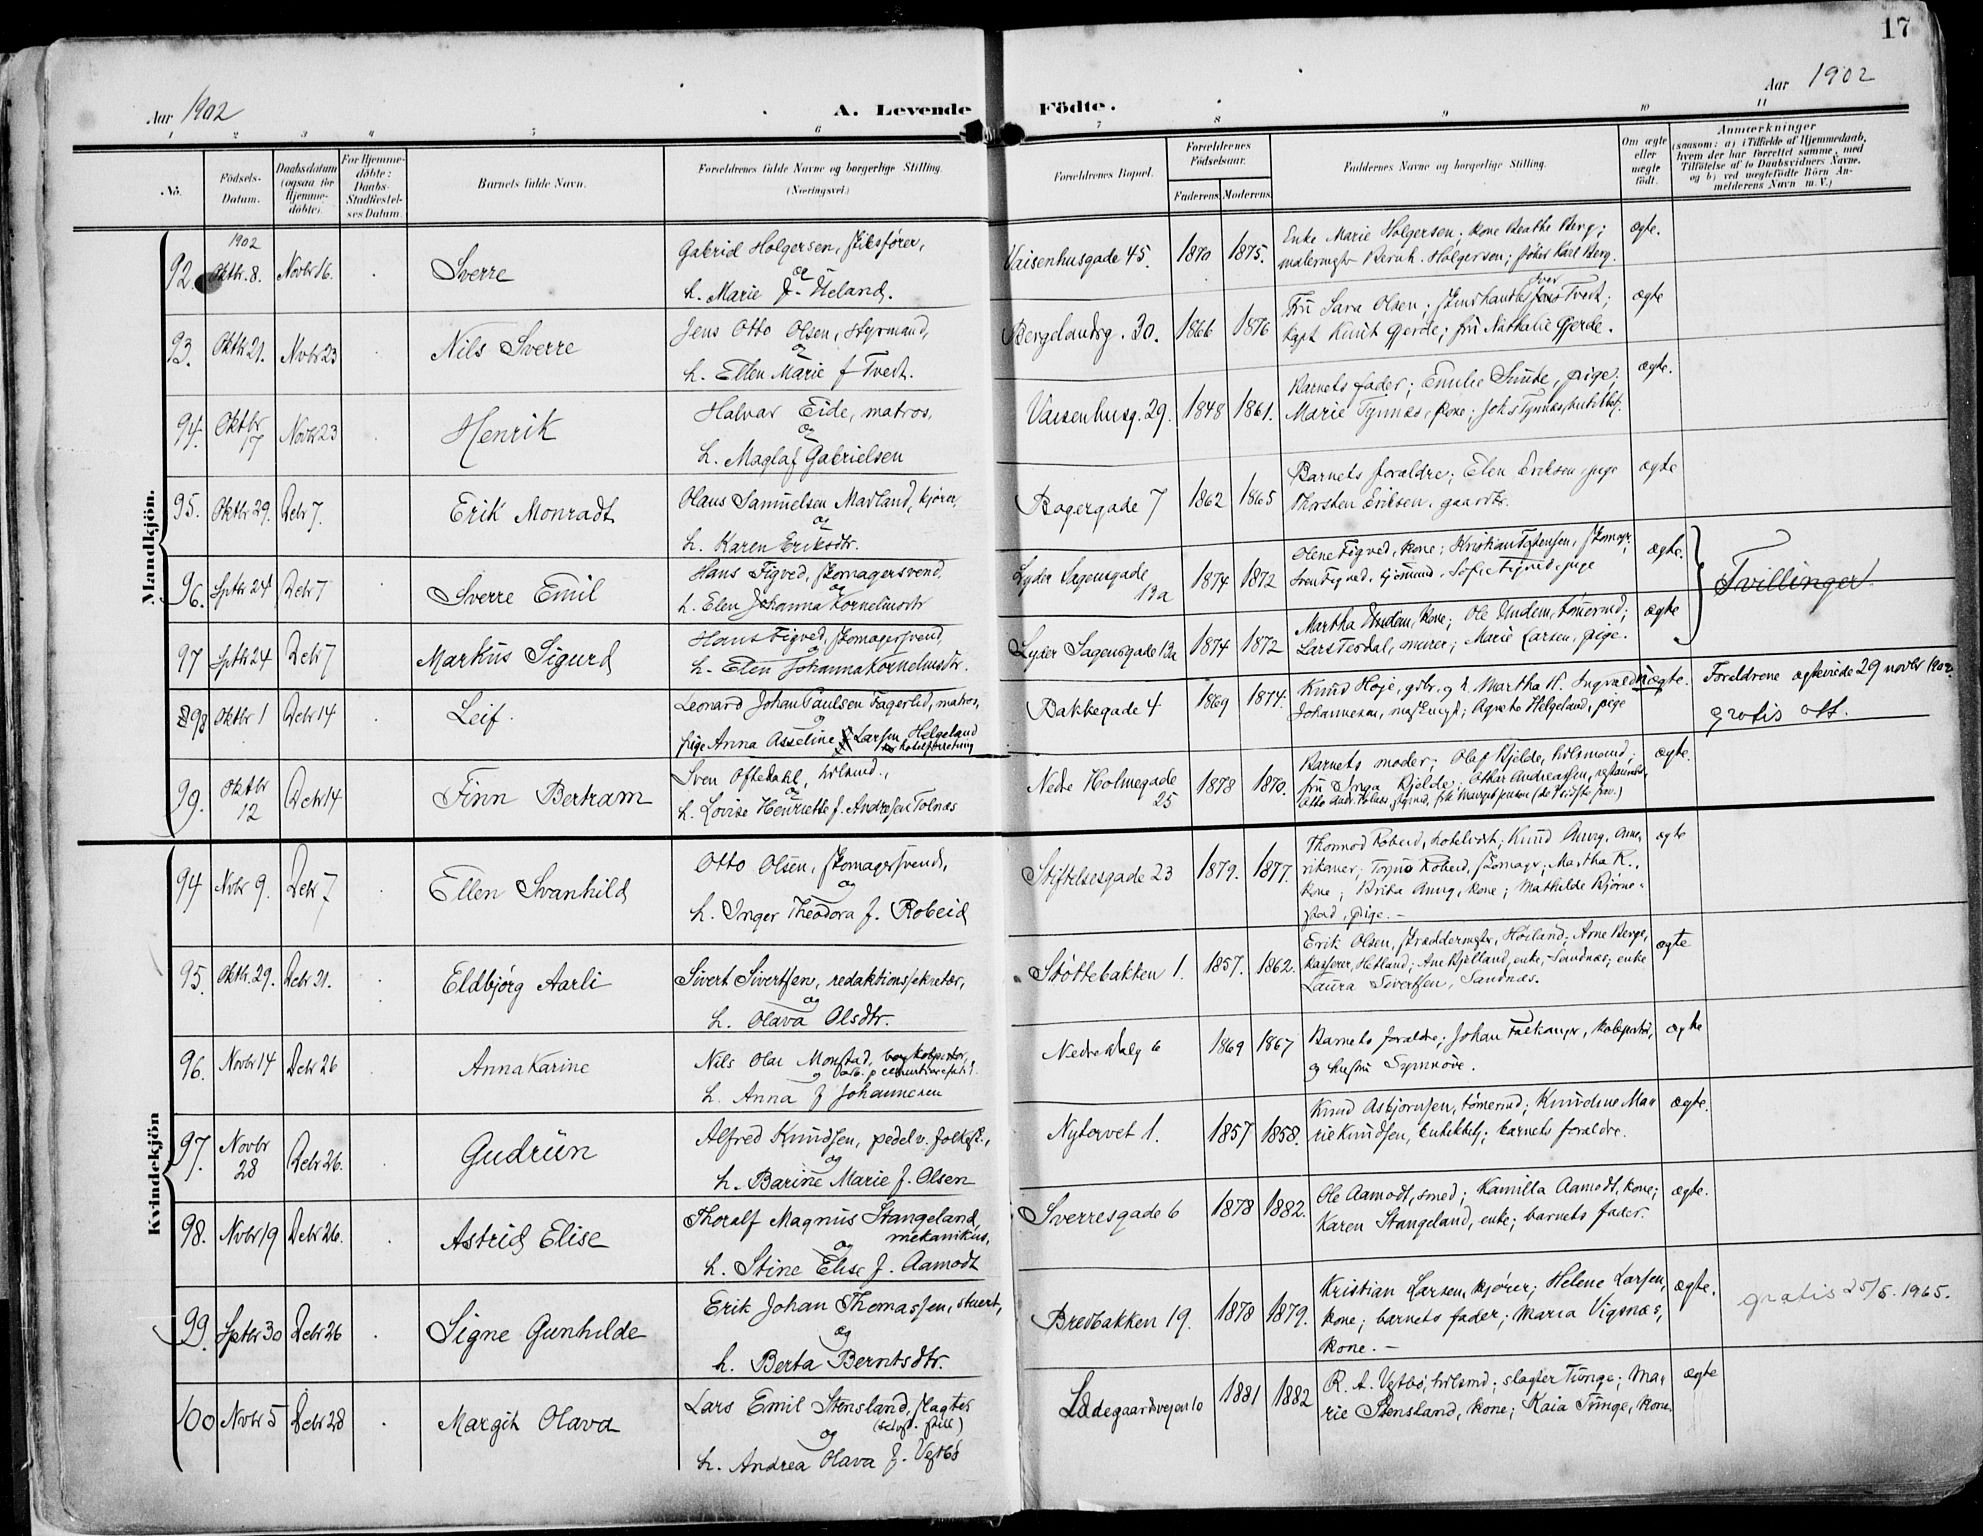 17
Aar 1902
A. Levende Födte.
Aar 1902
1 2 3 4 5 6 7 8 9 10 11
No.
Födsels-Datum.
Daabsdatum (ogsaa for Hjemmedöbte).
For Hjemmedöbte: Daabs-Stadfæstelses Datum.
Barnets fulde Navn.
Forældrenes fulde Navne og borgerlige Stilling. (Næringsvei.)
Forældrenes Bopæl.
Forældrenes Födselsaar.
Faderens Moderens
Faddernes Navne og borgerlige Stilling.
Om ægte eller uægte födt.
Anmærkninger
(saasom: a) i Tilfælde af Hjemmedaab, hvem der har forrettet samme, med Tilföielse af to Daabsvidners Navne, og b) ved uægtefödte Börn Anmelderens Navn m. V.)
Mandkjön.
1902
92. Oktbr. 8. Novbr 16. Sverre
Gabriel Holgersen, skibsfører,
og
h. Marie f. Ueland.
Vaisenhusgade 45. 1870 1875.
Enke Marie Holgersen; kone Beathe Berg;
malermstr Bernh. Holgersen; Karl Berg.
ægte.
93. Oktbr 21. Novbr 23 Nils Sverre
Jens Otto Olsen, styrmand,
og
h. Ellen Marie f Tvedt.
Bergelandsg. 30. 1866 1876
Fru Sara Olsen; Tvedt;
kapt Knut Gjerde; fru Nathalie Gjerde.
ægte
94. Oktbr 17 Novbr 23 Henrik
Halvar Eide, matros,
og
h. Maglaf Gabrielsen
Vaisenhusg. 29. 1848 1861.
Barnets fader; Emilie Smite, pige;
Marie Tynnæs, kone; Johs Tynnæs,
ægte.
95. Oktbr 29. Debr 7. Erik Monradt
Olaus Samuelsen Marland, kjører,
og
h. Karen Eriksdtr.
Bagergade 7 1862 1865
Barnets forældre; Elen Eriksen pige
Thorsten Eriksen, gaardbr.
ægte
96. Sptbr 24 Debr 7 Sverre Emil
Hans Figved, skomagersvend,
og
h. Elen Johanna Kornelinsdtr
Lyder Sagensgade 13a 1874 1872
Olene Figved, kone; Kristian Tostensen, skomagr,
Sven Figved, sjømand. Sofie Figved, pige
ægte.
Tvillinger.
97 Sptbr 24 Debr 7 Markus Sigurd
Hans Figved, skomagersvend,
og
h. Elen Johanna Kornelinsdtr.
Lyder Sagensgade 13a 1874 1872
Martha Undem, kone; Ole Undem, tømermd;
Lars Tesdal, murer; Marie Larsen, pige.
ægte
98 Oktbr 1 Debr 14 Leif.
Leonard Johan Paulsen Fagerlid, matros,
og
pige Anna Asseline Larsen Helgeland
Bakkegade 4 1869 1874.
Knud Høje, gdbr. og h. Martha H. Ingvald
Johannesen, ; Agnete Helgeland, pige
uægte.
Forældrene ægteviede 29 novbr 1902.
gratis att.
99. Oktbr 12 Debr 14 Finn Bertram
Sven Oftedahl, hvlsmd.,
og
h. Lovise Henriette f. Andresen Tolnæs
Nedre Holmegade 25 1878 1870.
Barnets moder; Olaf Kjelde, hvlsmand;
fru Inga Kjelde; Othar Andreassen,
ægte.
Kvindekjön
94 Novbr 9. Debr 7 Ellen Svanhild
Otto Olsen, skomagersvend,
og
h. Inger Theodora f. Robeid
Stiftelsesgade 23 1879. 1877.
Thormod Robeid, ; Knud Aurg, Ame-
rikaner; Robeid, skomagr; Martha R.,
kone; Brita Aurg, kone; Mathilde Bjørne-
stad, pige. -
ægte
95. Oktbr. 29. Debr 21. Eldbjørg Aarli
Sivert Sivertsen, redaktionssekretær,
og
h. Olava Olsdtr.
Støttebakken 1. 1857. 1862.
Erik Olsen, skræddermstr, Høiland; Arne Berge,
kasserer, Hetland; Ane Kjelland, enke, Sandnæs; enke
Laura Sivertsen, Sandnæs.
ægte
96. Novbr 14 Debr 26 Anna Karine
Nils Olai Monstad, kolportør,
og
h. Anna f Johannesen
Nedre Dalg 6 1869 1867
Barnets forældre; Johan Falkangr, kolportør,
og hustru Synnøve.
ægte
97. Novbr 28 Debr 26. Gudrün
Alfred Knudsen, pedel v. folkesk.,
og
h. Barine Marie f. Olsen
Nytorvet 1. 1857 1858.
Knud Asbjørnsen, tømermd; Knudine Ma-
rie Knudsen, ; barnets forældre.
ægte.
98. Novbr 19 Debr 26. Astrid Elise
Thoralf Magnus Stangeland,
mekanikus,
og
h. Stine Elise f. Aamodt
Sverresgade 6 1878 1882.
Ole Aamodt, smed; Kamilla Aamodt, kone;
Karen Stangeland, enke; barnets fader.
ægte.
99. Sptbr 30 Debr 26 Signe Gunhilde
Erik Johan Thomassen, stuert,
og
h. Berta Berntsdtr.
Bredbakken 19. 1878 1879.
Kristian Larsen, kjører; Helene Larsen,
kone; barnets fader; Maria Vignæs,
kone. -
ægte.
gratis 25/5. 1965.
100 Novbr 5 Debr 28 Margit Olava
Lars Emil Stensland, slagter
(selvst. still)
og
h. Andrea Olava f. Vestbø
Ladegaardsvejen 10 1881 1882
R. A. Vestbø, hvlsmd; slagter Tunge; Ma-
rie Stensland, kone; Kaia Tunge, kone
ægte